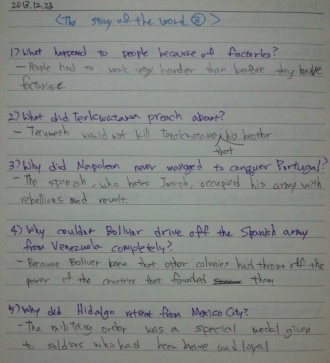 2013.12.23
<The story of the word ②>
1) What happened to people because of factories?
- People had to work very harder than before they have
factories.
2) What did Tenskwatawa preach about?
- Tecumseh would not kill his brother
that
3) Why did Napoleon never manged to conquer Portugal?
- The spanish, who hates Joseph, occupied his army with
rebellions and revolt.
4) Why couldn't Bolivar drive off the Spanish army
from Venezuela completely?
- Because Boliver knew that other colonies had thrown off the
power of the countries that founded them
5) Why did Hidalgo retreat from Mexico City?
- The military order was a special medal given
to soldiers who had been brave and loyal